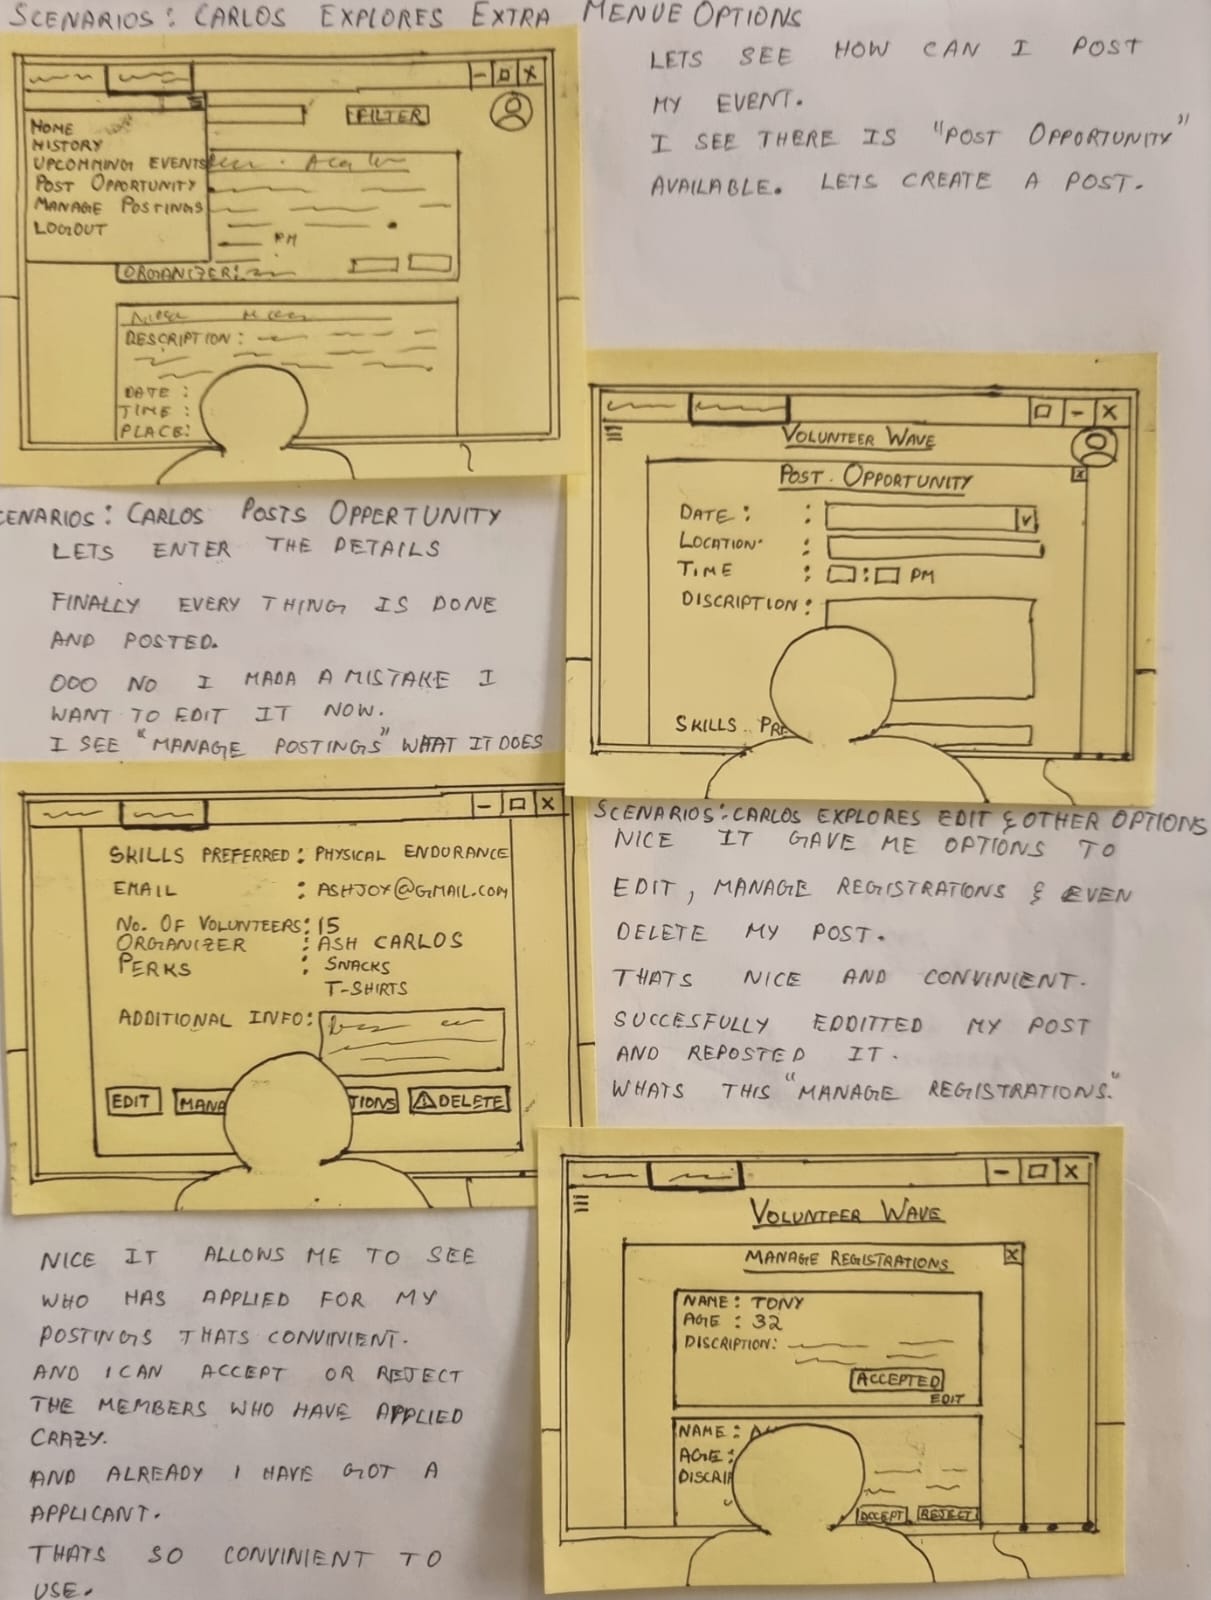 SCENARIOS: CARLOS EXPLORES EXTRA MENUE OPTIONS
FILTER
HOME
HISTORY
UPCOMMING EVENTS
POST OPPORTUNITY
MANAGE POSTINGS
LOGOUT
PM
ORGANIZER:
DESCRIPTION:
DATE :
TIME :
PLACE:
LETS SEE HOW CAN I POST
MY EVENT.
I SEE THERE IS "POST OPPORTUNITY"
AVAILABLE. LETS CREATE A POST.
VOLUNTEER WAVE
POST. OPPORTUNITY
DATE: :
LOCATION :
TIME : : PM
DISCRIPTION:
SKILLS PRE
CENARIOS: CARLOS POSTS OPPERTUNITY
LETS ENTER THE DETAILS
FINALLY EVERY THING IS DONE
AND POSTED.
OOO NO I MADA A MISTAKE I
WANT TO EDIT IT NOW.
I SEE "MANAGE POSTINGS" WHAT IT DOES
SKILLS PREFERRED : PHYSICAL ENDURANCE
EMAIL : ASHJOY@GMAIL.COM
NO. OF VOLUNTEERS: 15
ORGANIZER : ASH CARLOS
PERKS : SNACKS
T-SHIRTS
ADDITIONAL INFO:
EDIT MANA TIONS DELETE
SCENARIOS: CARLOS EXPLORES EDIT & OTHER OPTIONS
NICE IT GAVE ME OPTIONS TO
EDIT, MANAGE REGISTRATIONS & EVEN
DELETE MY POST.
THATS NICE AND CONVINIENT.
SUCCESFULLY EDDITTED MY POST
AND REPOSTED IT.
WHATS THIS "MANAGE REGISTRATIONS."
VOLUNTEER WAVE
MANAGE REGISTRATIONS
NAME : TONY
AGE : 32
DISCRIPTION:
ACCEPTED
EDIT
NAME :
AGE :
DISCRIP
ACCEPT REJECT
NICE IT ALLOWS ME TO SEE
WHO HAS APPLIED FOR MY
POSTINGS THATS CONVINIENT.
AND I CAN ACCEPT OR REJECT
THE MEMBERS WHO HAVE APPLIED
CRAZY.
AND ALREADY I HAVE GOT A
APPLICANT.
THATS SO CONVINIENT TO
USE.